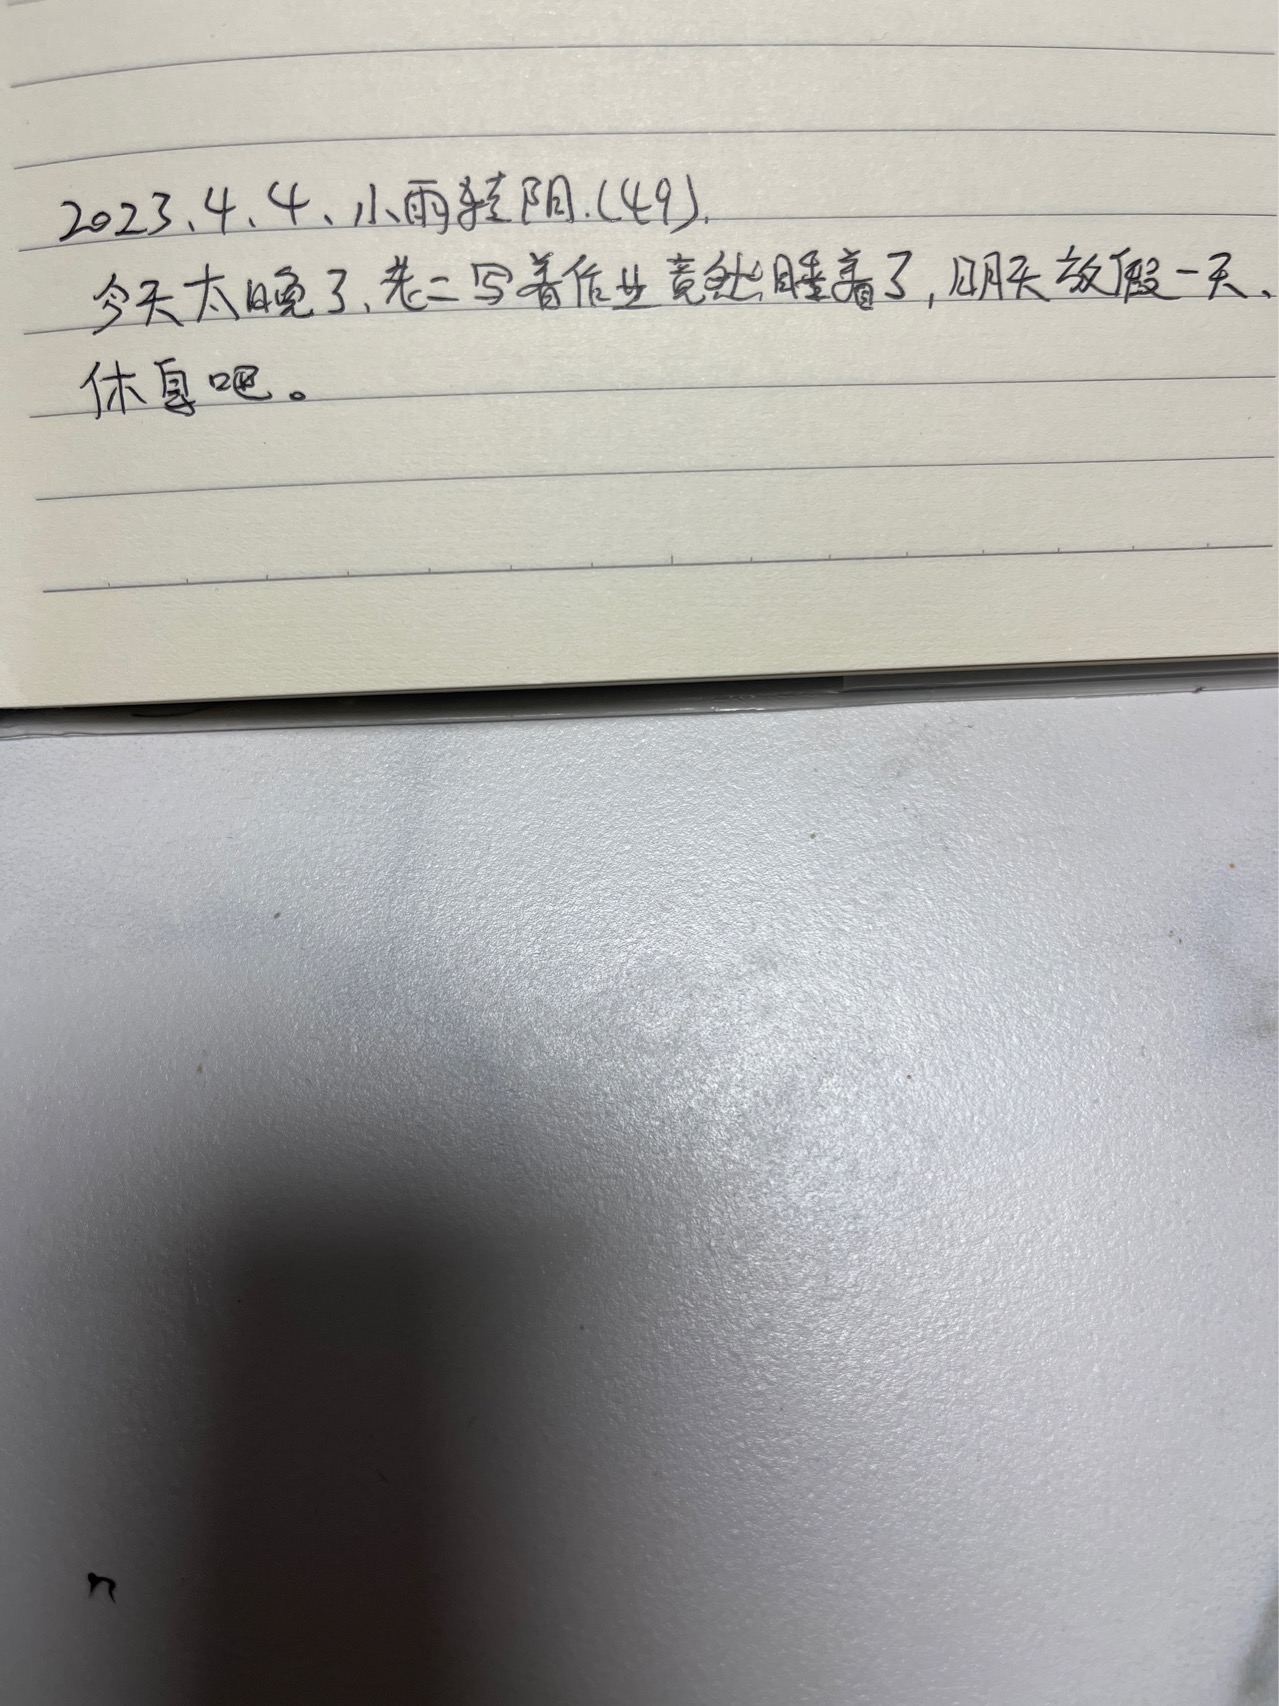 2023、4、4、小雨转阴.(49).
今天太晚了、老二写着作业竟然睡着了,明天放假一天、
休息吧。